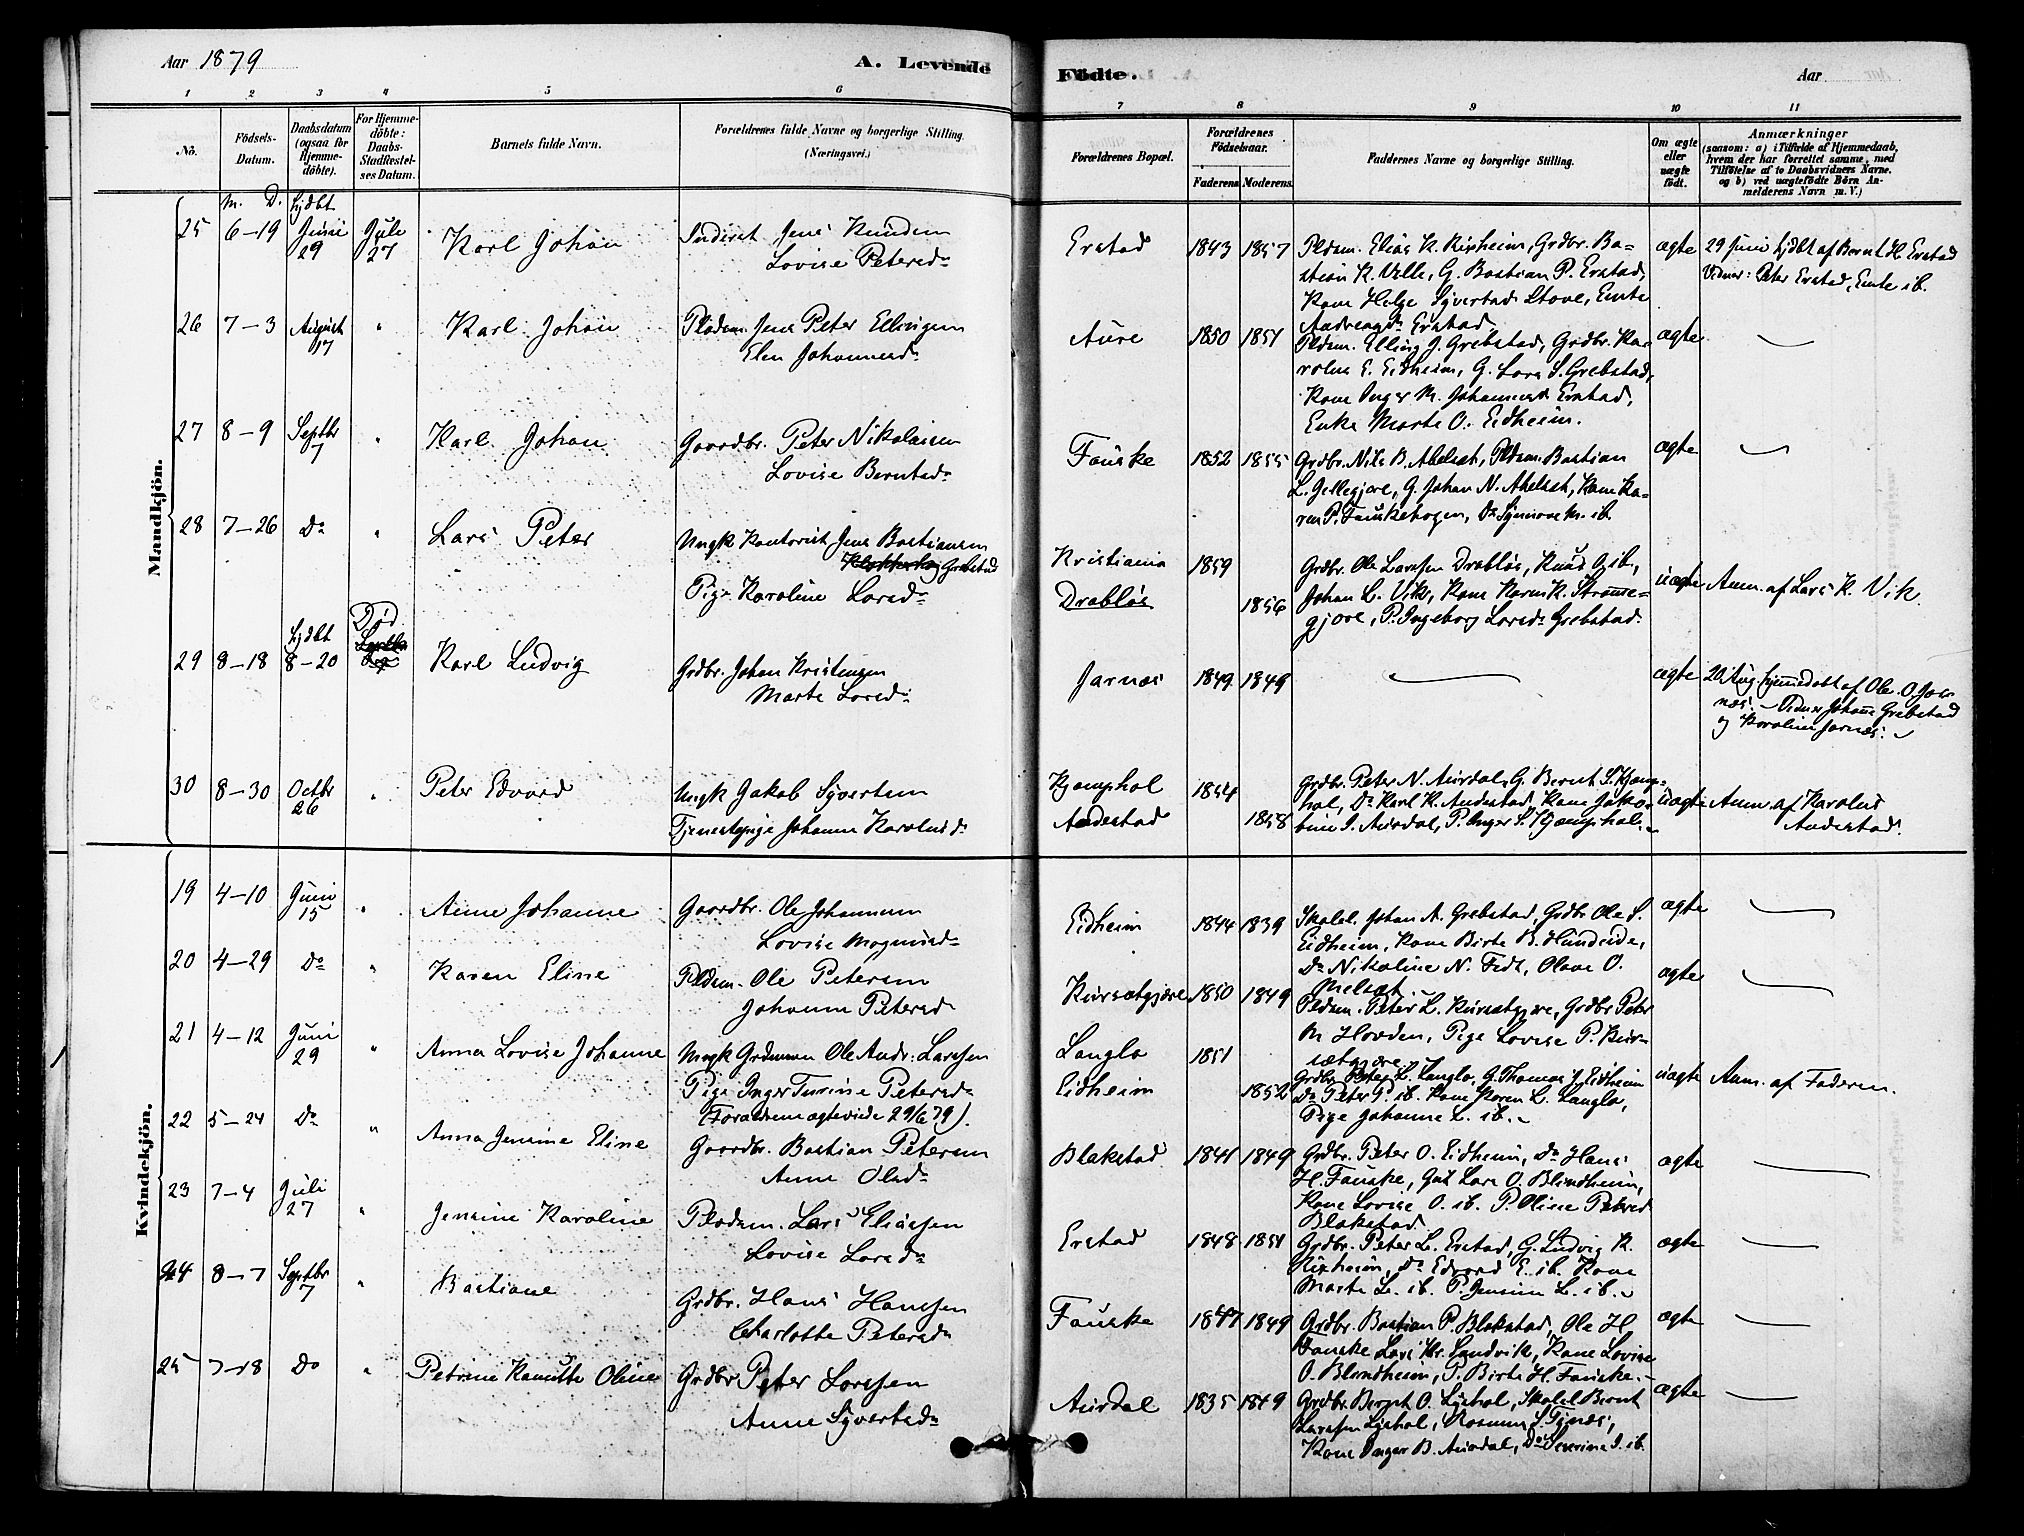 Aar 1879
A. Levende
Födte.
Aar
1 2 3 4 5 6 7 8 9 10 11
No.
Födsels-
Datum.
Daabsdatum
(ogsaa for
Hjemme-
döbte).
For Hjemme-
döbte:
Daabs-
Stadfæstel-
ses Datum.
Barnets fulde Navn.
Forældrenes fulde Navne og borgerlige Stilling.
(Næringsvei.)
Forældrenes Bopæl.
Forældrenes
Födselsaar.
Faderens Moderens
Faddernes Navne og borgerlige Stilling.
Om ægte
eller
uægte
födt.
Anmærkninger
(saasom: a) i Tilfælde af Hjemmedaab,
hvem der har forrettet samme, med
Tilföielse af to Daabsvidners Navne.
og b) ved uægtefödte Börn An-
melderens Navn m. V.)
Mandkjön.
M. D. hjdbt
25 6-19 Juni 29 Juli 27 Karl Johan
Inderst Jens Knudsen
Lovise Petersdr
Erstad 1843 1857
Pldsm. Elias K. Ripheim, Grdbr. Ba-
stian K. Velle, G. Bastian P. Erstad,
Kone Helge Syvertsd. Stove, Enke
Andreasdr Erstad.
ægte
29 Juni hjdbt af Bernt H. Erstad
Vidner: Peter Erstad, Emte ib.
26 7-3 August 17 " Karl Johan
Pladsm. Jens Peter Ellingsen
Elen Johannesdr
Aure 1850 1851
Pldsm. Elling J. Grebstad, Grdbr. Ka-
rolus E. Eidheim, G. Lars S. Grebstad,
Kone Inger M. Johannesdr Erstad,
Enke Marte O. Eidheim.
ægte
27 8-9 Septbr 7 " Karl Johan
Gaardbr. Peter Nikolaisen
Lovise Berntsdr
Fauske 1852 1855
Grdbr. Nils B. Abelset, Pldsm. Bastian
L. Gjellegjære, G. Johan N. Abelset, Kone Ka-
ren P. Fauskehagen, Do Synnove M. ib.
ægte
28 7-26 Do " Lars Peter
Ungk Kontorist Jens Bastiansen
Grebstad
Pige Karoline Larsdr
Kristiania 1859
Drabløs 1856
Grdbr. Ole Larssen Drabløs, Knud O. ib,
Johan L. Vik, Kone Karen K. Strømme-
gjære, P. Ingeborg Larsdr Grebstad.
uægte
Anm. af Lars K. Vik.
29 8-18 hjdbt 8-20 Død Karl Ludvig
Grdbr. Johan Kristensen
Marte Larsdr
Jarnæs 1849 1849
ægte
20 Aug. hjemmedøbt af Ole O. Jar-
næs. - Vidner Johanne Grebstad
og Karoline Jarnæs.
30 8-30 Octbr 26 " Peter Edvard
Ungk Jakob Syvertsen
Tjenestepige Johanne Karolusdr
Kjæmphol 1854
Andestad 1858
Grdbr. Peter N. Aurdal, G. Bernt S. Kjæmp-
hol, Do Karl K. Andestad, Kone Jako-
bine I. Aurdal, P. Inger S. Kjæmphol.
uægte
Anm. af Karolus
Andestad.
Kvindekjön.
19 4-10 Juni 15 " Anne Johanne
Gaardbr. Ole Johannesen
Lovise Mogensdr
Eidheim 1844 1839
Skolel. Johan A. Grebstad, Grdbr Ole S.
Eidheim, Kone Birte B. Hundeide,
Do Nikoline N. Fedt, Olave O.
Melset
ægte
20 4-29 Do " Karen Eline
Pldsm. Ole Petersen
Johanne Petersdr
Kursætgjære 1850 1849
Pldsm. Peter L. Kursætgjære, Grdbr Peter
M Hovden, Pige Lovise P. Kur-
sætgjære
ægte
21 4-12 Juni 29 " Anna Lovise Johanne
Ungk Grdmand Ole Andr. Larssen
Pige Inger Turine Petersdr
(Forældrene ægteviede 29/6 79).
Langlo 1851
Eidheim 1852
Grdbr. Peter L. Langlo, G. Thomas J. Eidheim
Do Peter P. ib. Kone Karen L. Langlo,
Pige Johanne L. ib.
uægte
Anm. af Faderen.
22 5-24 Do " Anna Jensine Eline
Gaardbr. Bastian Petersen
Anne Olsdr
Blakstad 1841 1849
Grdbr. Peter O. Eidheim, Do Hans
H. Fauske, Gut Lars O. Blindheim,
Kone Lovise O. ib. P. Oline Petersd
Blakstad
ægte
23 7-4 Juli 27 " Jensine Karoline
Pladsm. Lars Eliassen
Lovise Larsdr
Erstad 1848 1851
Grdbr. Peter L. Erstad, G. Ludvig K.
Ripheim, Do Edvard E. ib. Kone
Marte L. ib. P. Jensine L. ib.
ægte
24 8-7 Septbr 7 " Bastiane
Grdbr. Hans Hanssen
Charlotte Petersdr
Fauske 1847 1849
Grdbr. Bastian P. Blakstad, Ole H
Fauske Lars Kr. Sandvik, Kone Lovise
O. Blindheim, P. Birte H. Fauske.
ægte
25 7-18 Do " Petrine Kanutte Oline
Grdbr Peter Larssen
Anne Syvertsdr
Aurdal 1835 1849
Grdbr. Bernt O. Lyshol, Skolel Bernt
Larssen Lyshol, Rasmus S. Tynes,
Kone Inger B. Aurdal, Do Severine I. ib.
ægte